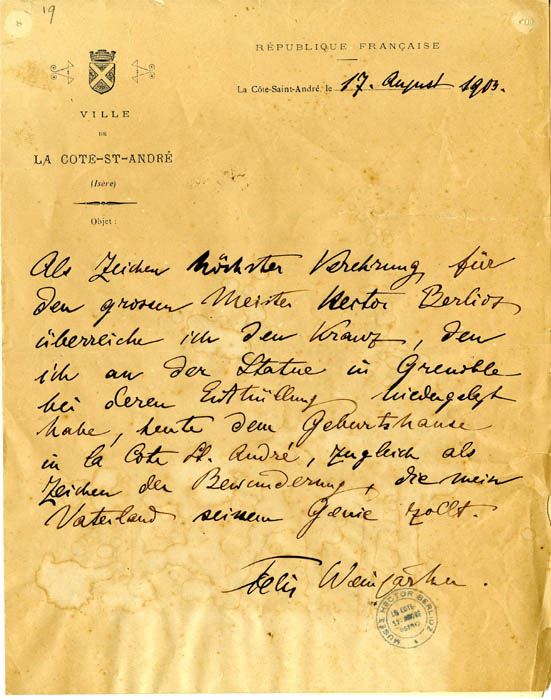 19
RÉPUBLIQUE FRANÇAISE
La Côte-Saint-André, le 17. August 1903.
VILLE
DE
LA COTE-ST-ANDRÉ
(Isère)
Objet :
Als Zeichen höchster Verehrung für
den grossen Meister Hector Berlioz
überreiche ich den Kranz, den
ich an der Statue in Grenoble
bei deren Enthüllung niedergelegt
habe, heute dem Geburtshause
in la Cote St. André, zugleich als
Zeichen der Bewunderung, die mein
Vaterland seinem Genie zollt.
Felix Weingartner.
MUSÉE HECTOR BERLIOZ
LA COTE
ST-ANDRÉ